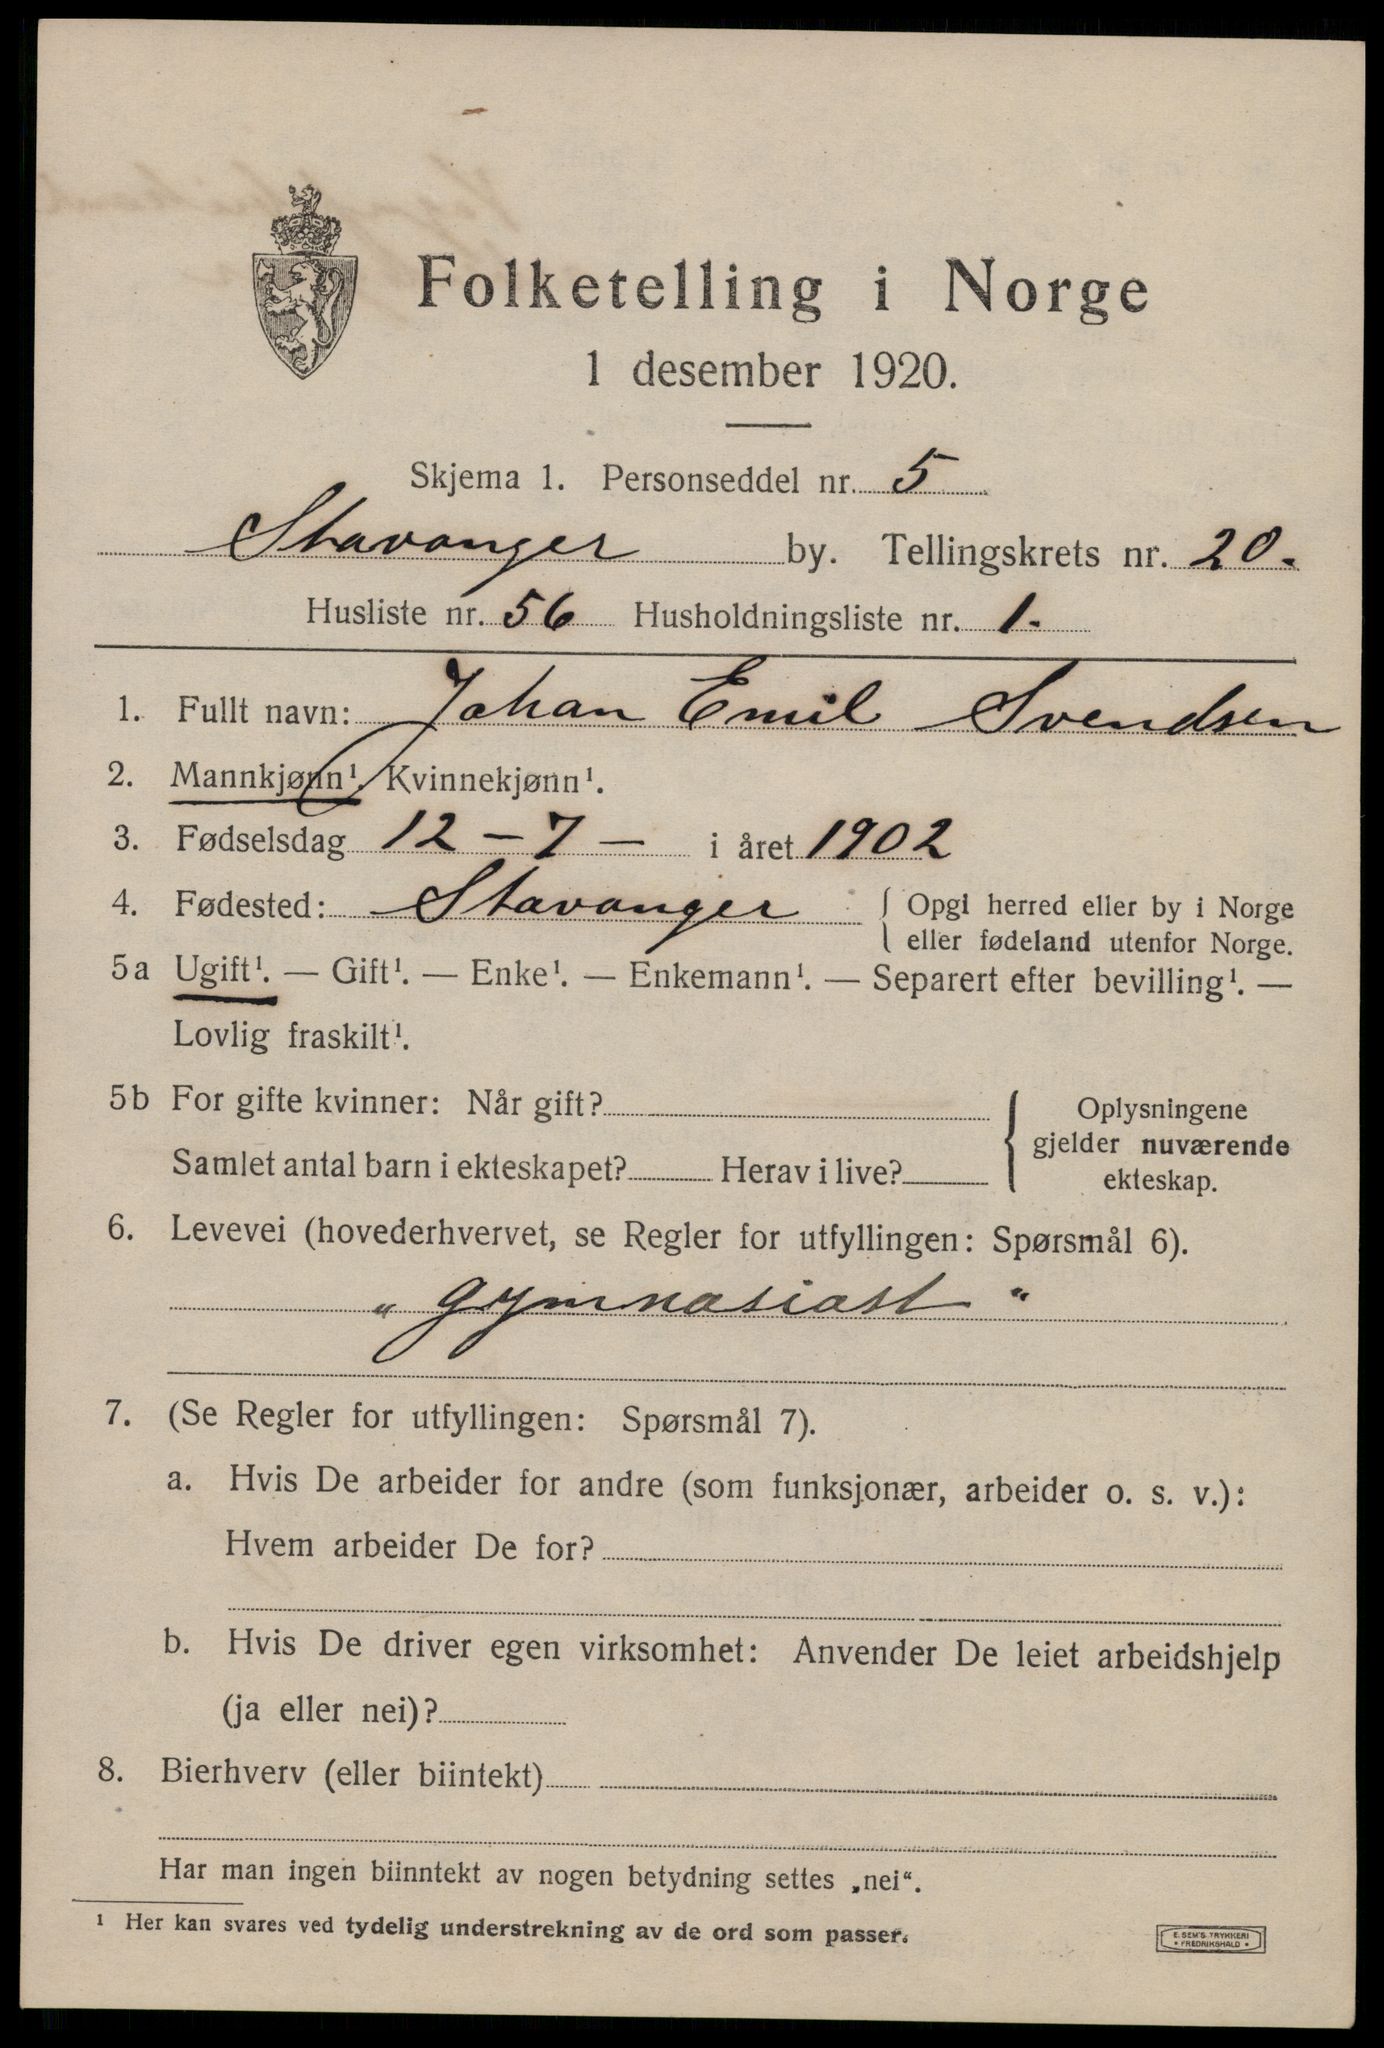 Folketelling i Norge
1 desember 1920.
Skjema 1. Personseddel nr. 5
Stavanger by. Tellingskrets nr. 20.
Husliste nr. 56 Husholdningsliste nr. 1.
1. Fullt navn: Johan Emil Svendsen
2. Mannkjønn¹. Kvinnekjønn¹.
3. Fødselsdag 12 - 7 - i året 1902
4. Fødested: Stavanger { Opgi herred eller by i Norge
eller fødeland utenfor Norge.
5a Ugift¹. — Gift¹. — Enke¹. — Enkemann¹. — Separert efter bevilling¹. —
Lovlig fraskilt¹.
5b For gifte kvinner: Når gift? { Oplysningene
gjelder nuværende
Samlet antal barn i ekteskapet? Herav i live? ekteskap.
6. Levevei (hovederhvervet, se Regler for utfyllingen: Spørsmål 6).
„ gymnasiast "
7. (Se Regler for utfyllingen: Spørsmål 7).
a. Hvis De arbeider for andre (som funksjonær, arbeider o. s. v.):
Hvem arbeider De for?
b. Hvis De driver egen virksomhet: Anvender De leiet arbeidshjelp
(ja eller nei)?
8. Bierhverv (eller biintekt)
Har man ingen biinntekt av nogen betydning settes „nei“.
¹ Her kan svares ved tydelig understrekning av de ord som passer.
E. SEM'S TRYKKERI
• FREDRIKSHALD •